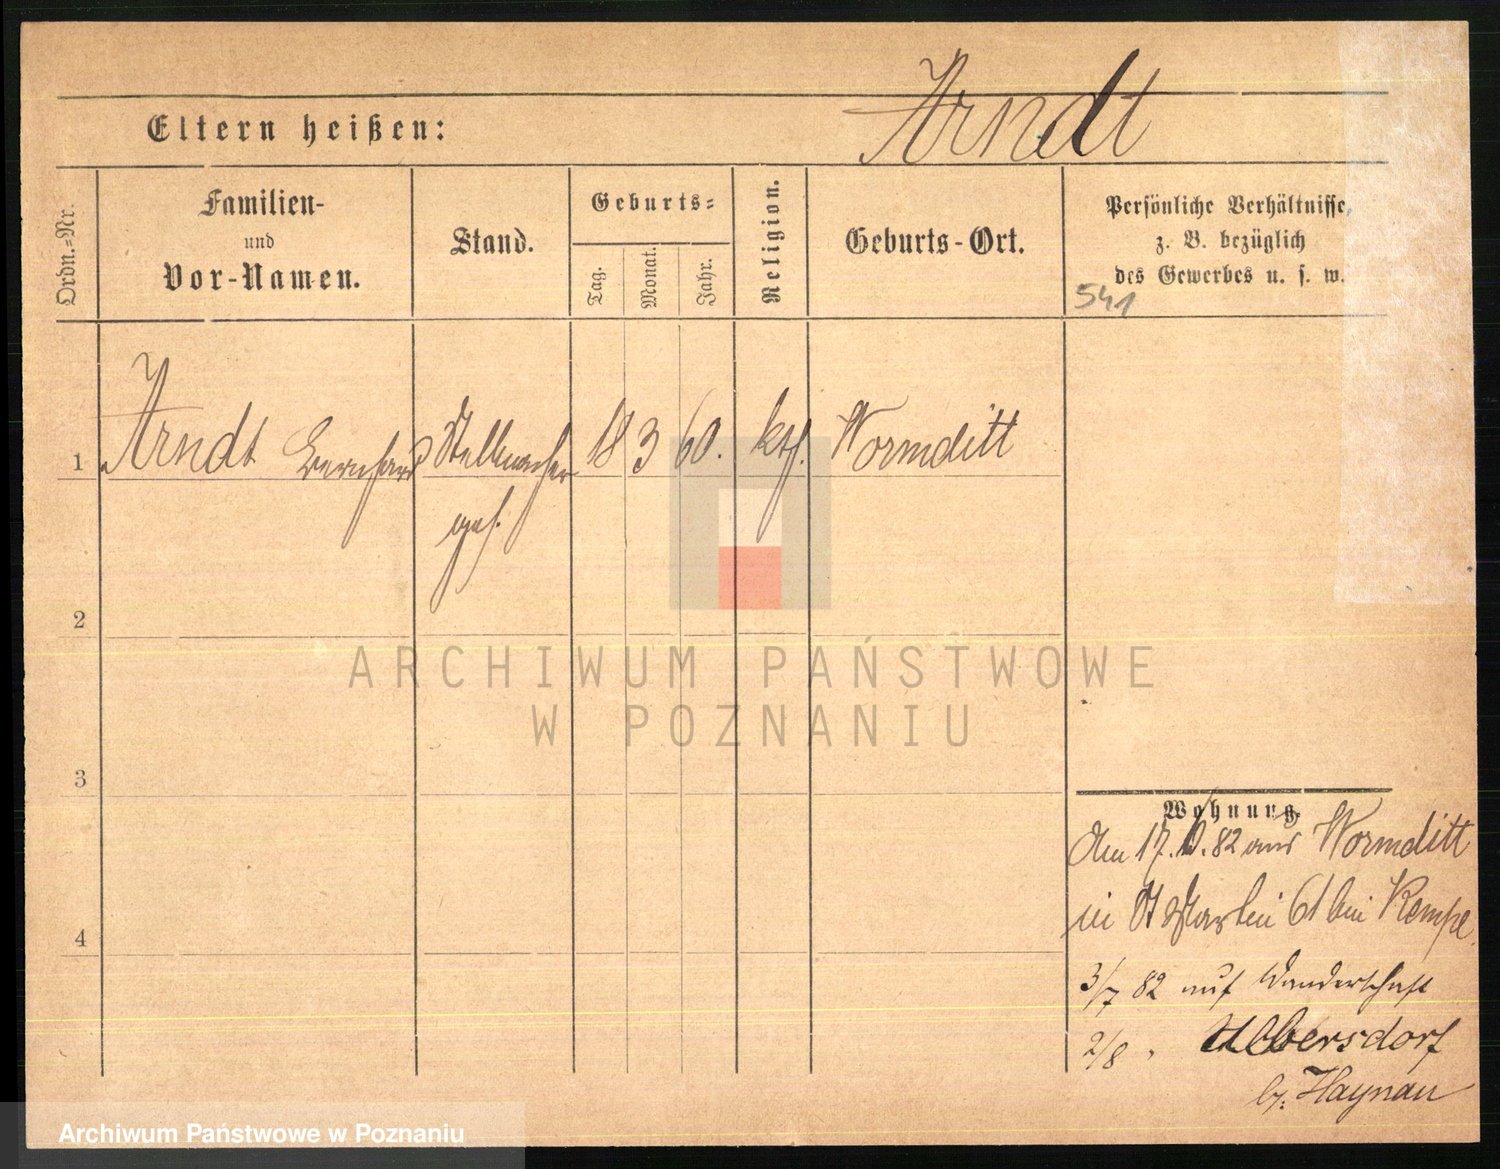 Arndt
Eltern heißen:
Ordn.-Nr.
Familien-
und
Vor-Namen.
Stand.
Geburts-
Tag.
Monat.
Jahr.
Religion.
Geburts-Ort.
Persönliche Verhältnisse,
z. B. bezüglich
des Gewerbes u. s. w.
541
1 Arndt Bernhard Stellmacher 18 3 60. kth. Wormditt
ges.
2
ARCHIWUM PAŃSTWOWE
W POZNANIU
3
Wohnung.
Am 17. 82 aus Wormditt
in St Martin 61 bei Kempe
4
3/7 82 auf Wanderschaft
2/8 " Ulbersdorf
b/. Haynau
Archiwum Państwowe w Poznaniu